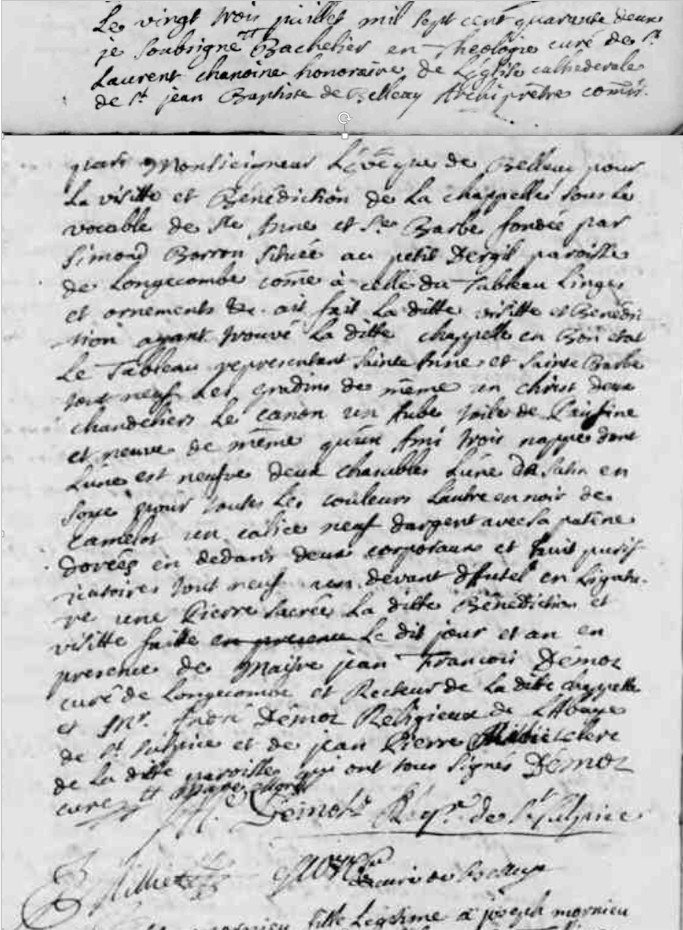 Le vingt trois juillet mil sept cent quarante deux
je soubsigné Bachelier en Theologie curé de St
Laurent chanoine honoraire de L'église cathedrale
de St jean Baptiste de Belleay Archiprêtre commis
par Monseigneur L'évêque de Belleay pour
La visitte et Bénédiction de La chappelle sous Le
vocable de Ste Anne et Ste Barbe fondée par
Simond Borron située au petit Dergil paroisse
de Longecombe come à celle du Tableau Linges
et ornements &c. ait fait La ditte visitte et Bénédi
tion ayant trouvé La ditte chappelle en Bon état
Le Tableau representant Sainte Anne et Sainte Barbe
tout neuf Les gradins de même un christ deux
chandeliers Le canon un Aube toile de
et neuve de même qu'un Ami trois nappe dont
Lune est neufve deux chasubles Lune de Satin en
soye pour toutes Les couleurs Lautre en noir de
camelot un calice neuf dargent avec sa patène
dorées en dedans deux corporaux et huit purif
icatoires tout neuf un devant d'Autel en Ligatu-
re une Pierre sacrée La ditte Bénédiction et
visitte faitte en presence Le dit jour et an en
presence de Maitre jean Francois Démoz
curé de Longecombe et Recteur de La ditte chappelle
et Mr. Démoz Religieux de L'Abaye
de St Sulpice et de jean Pierre clerc
de La ditte paroisse qui ont tous signés Démoz
curé
Rgx. de St Sulpice

fille Légitime à joseph mornieu